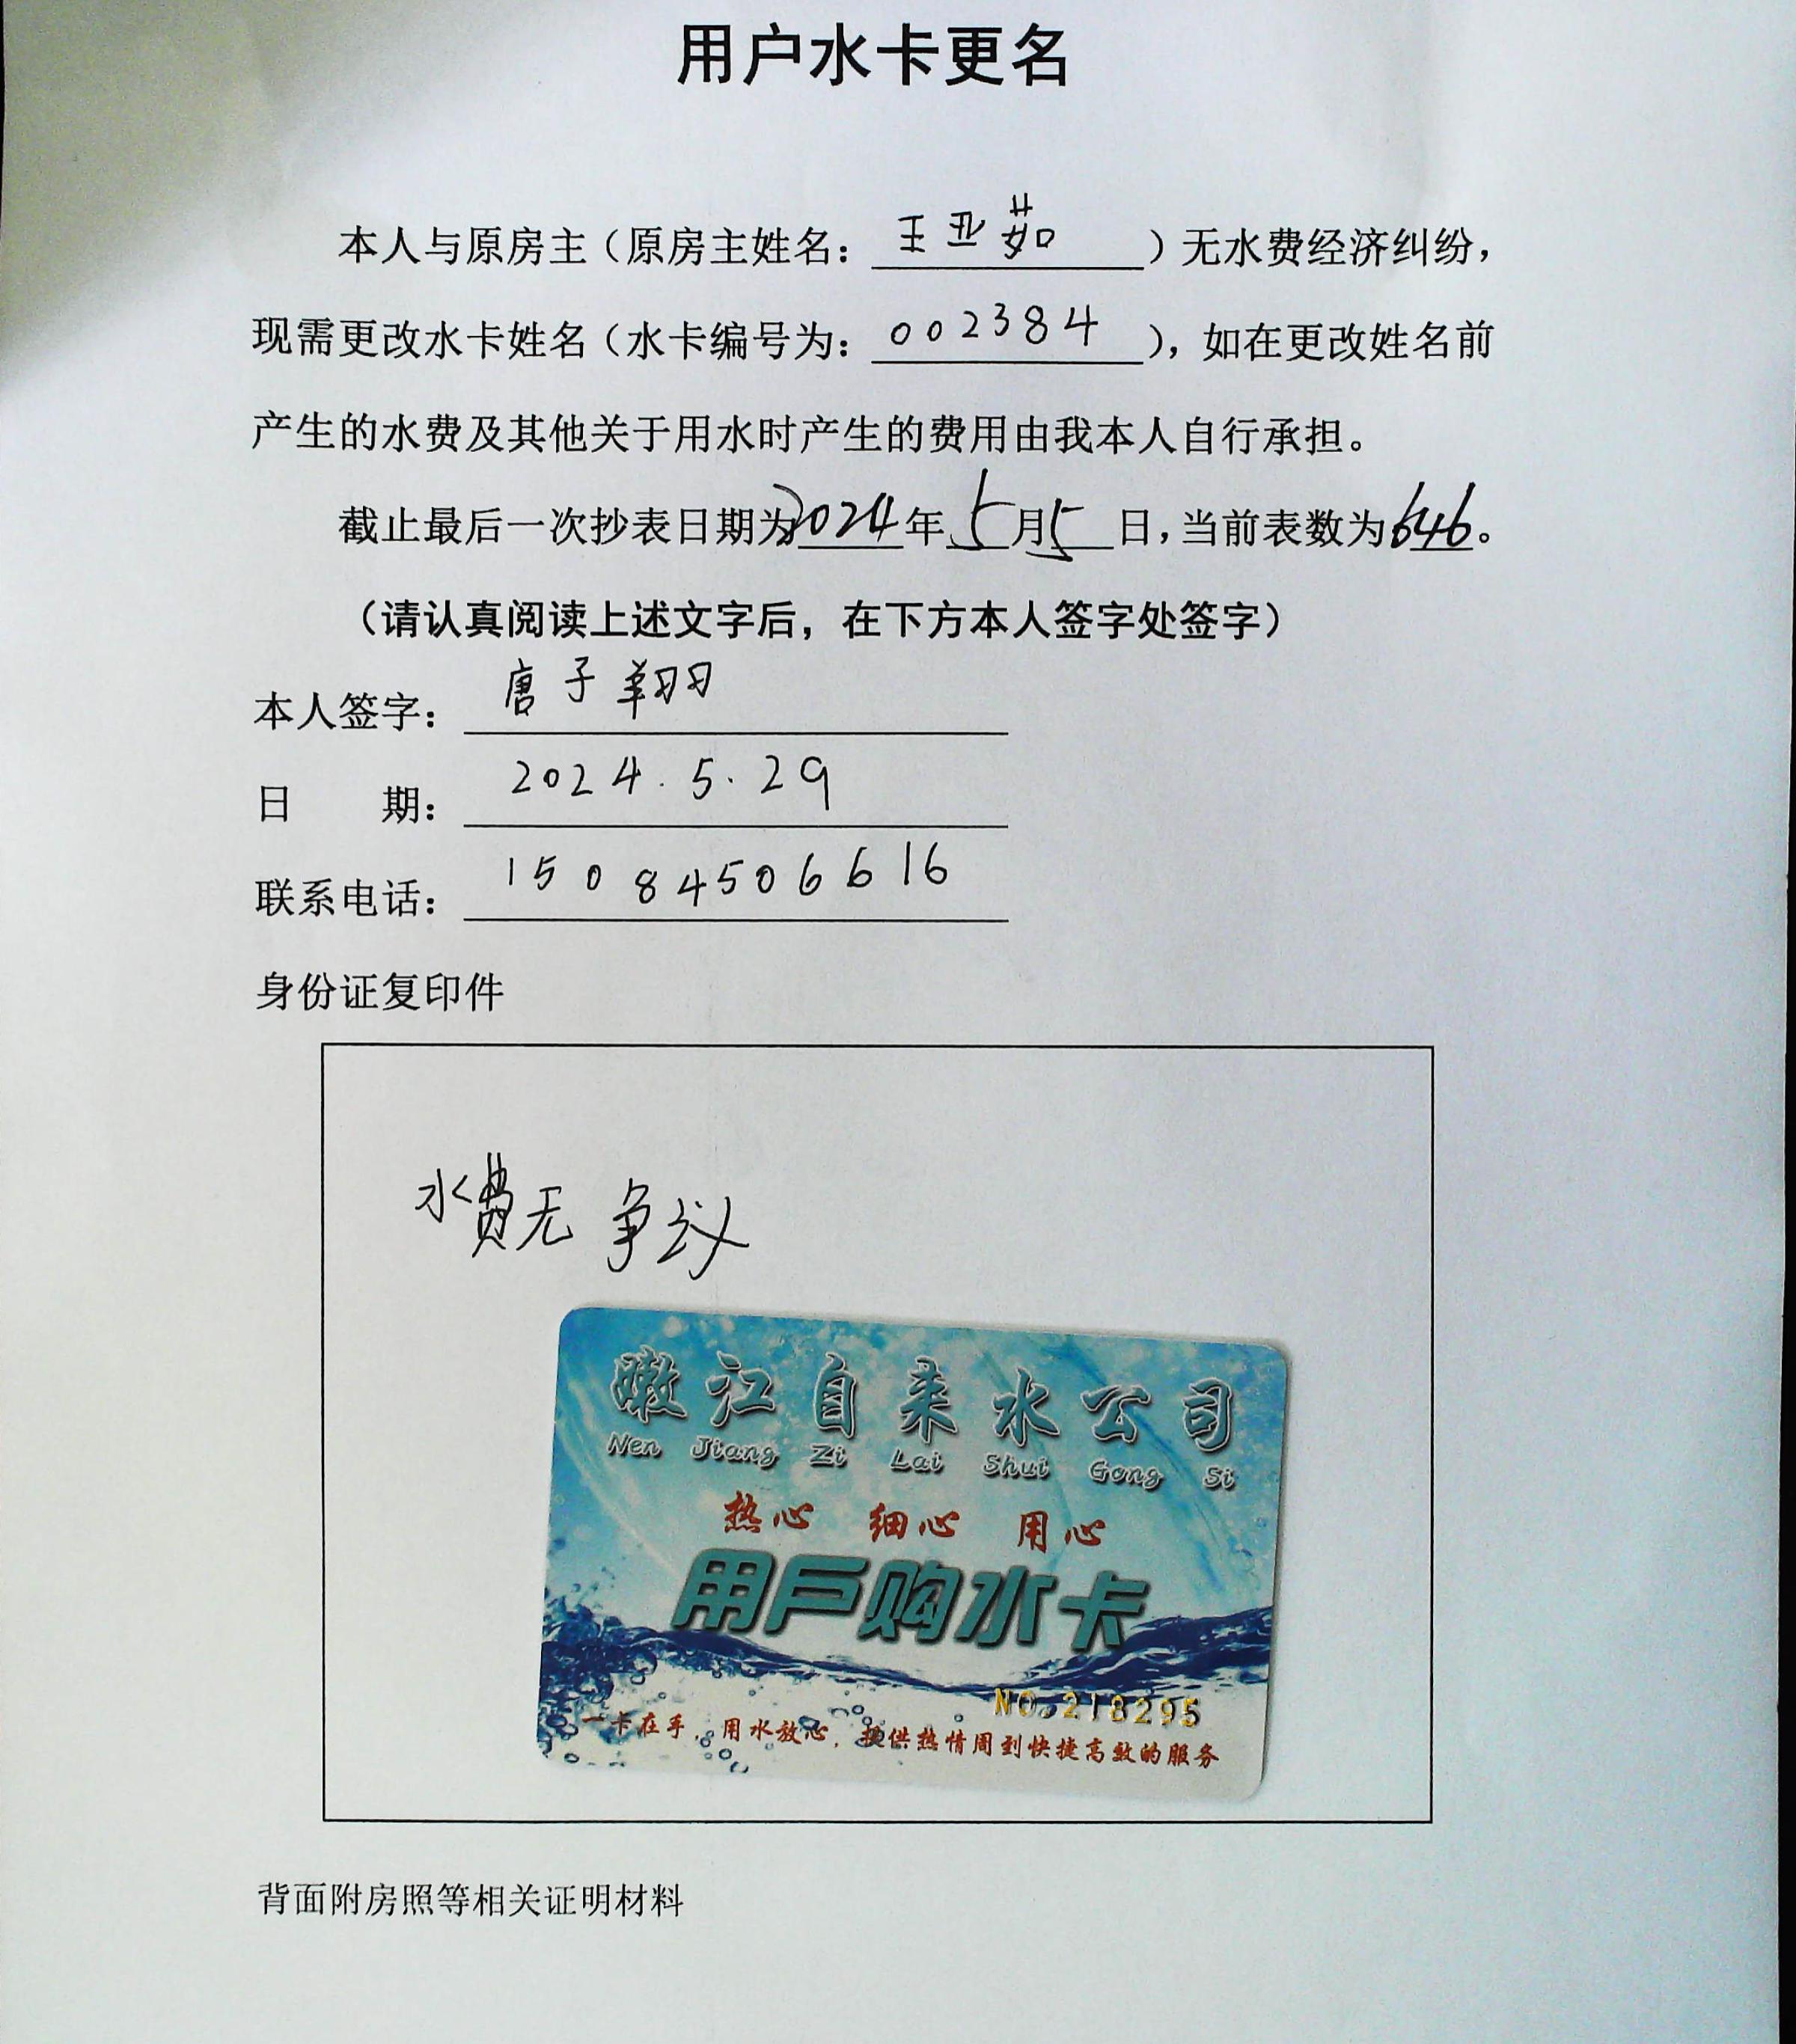 用户水卡更名
本人与原房主（原房主姓名：王亚茹）无水费经济纠纷，
现需更改水卡姓名（水卡编号为：002384），如在更改姓名前
产生的水费及其他关于用水时产生的费用由我本人自行承担。
截止最后一次抄表日期为2024年5月5日，当前表数为646。
（请认真阅读上述文字后，在下方本人签字处签字）
本人签字：唐子翔
日 期：2024.5.29
联系电话：15084506616
身份证复印件
水费无争议
嫩江自来水公司
Nen Jiang Zi Lai Shui Gong Si
热心 细心 用心
用户购水卡
NO.218295
一卡在手，用水放心，提供热情周到快捷高效的服务
背面附房照等相关证明材料